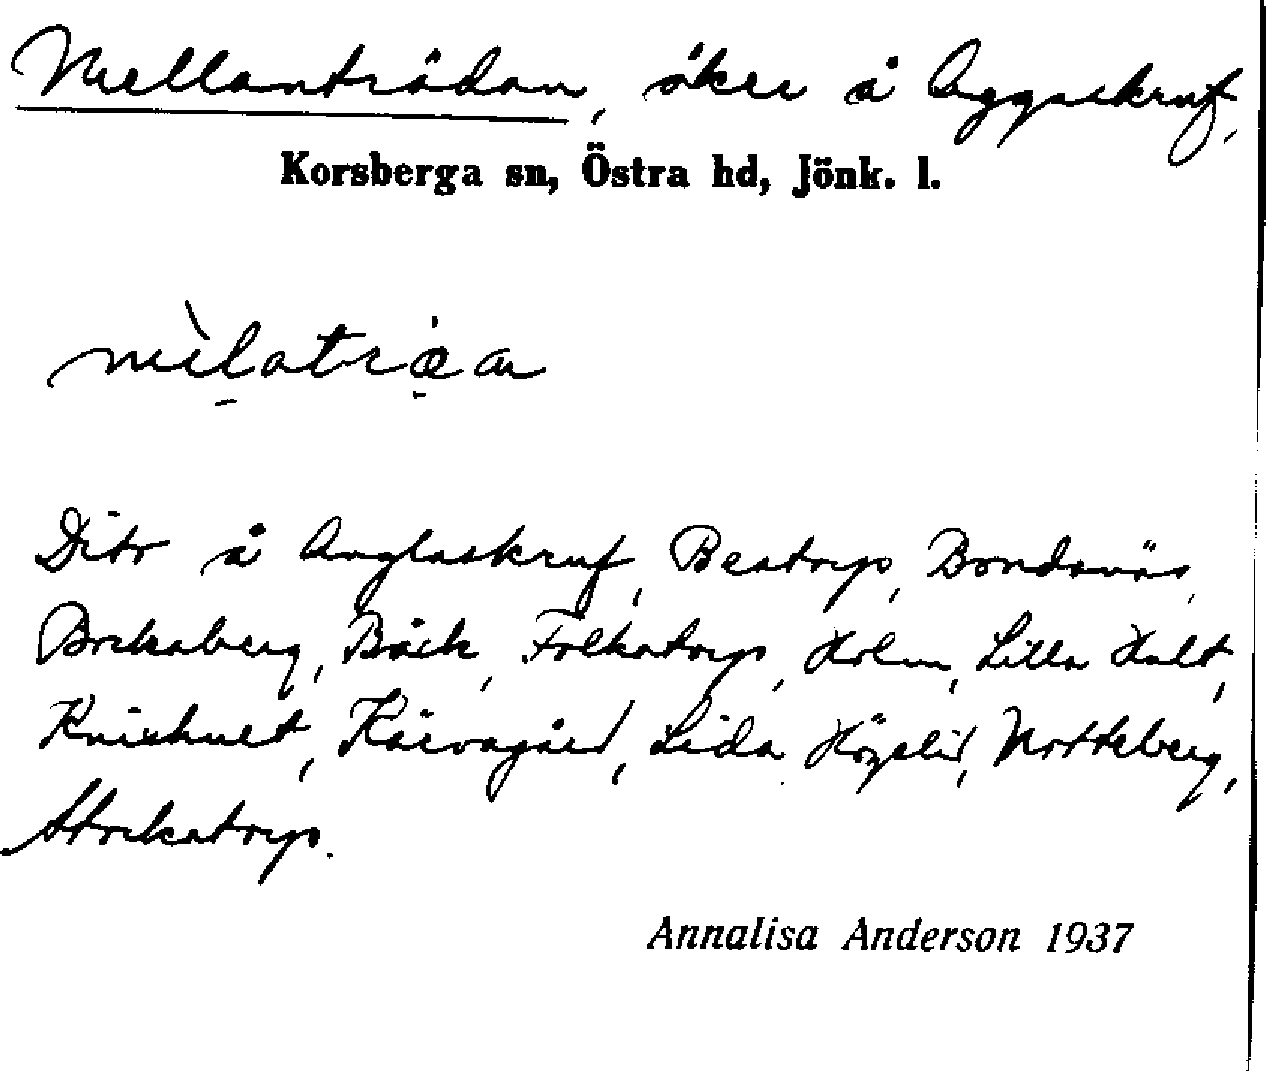 Mellanträdan, åker å Aggaskruf,
Korsberga sn, Östra hd, Jönk. l.
Dito å Anglaskruf, Beatorp, Bondanäs,
Brekaberg, Bäck, Folkatorp, Holm, Lilla Hult,
Knixhult, Kärvagård, Lida Högalid, Notteberg,
Stockatorp.
Annalisa Anderson 1937